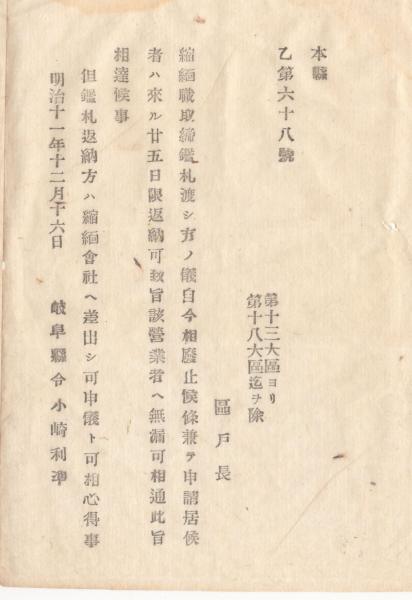 本縣
乙第六十八號
第十三大區ヨリ
第十八大區迄ヲ除
區戸長
縮緬職取締鑑札渡シ方ノ儀自今相廢止候條兼テ申請居候
者ハ來ル廿五日限返納可致旨該營業者ヘ無漏可相通此旨
相達候事
但鑑札返納方ハ縮緬會社ヘ差出シ可申儀ト可相心得事
明治十一年十二月十六日 岐阜縣令小崎利準